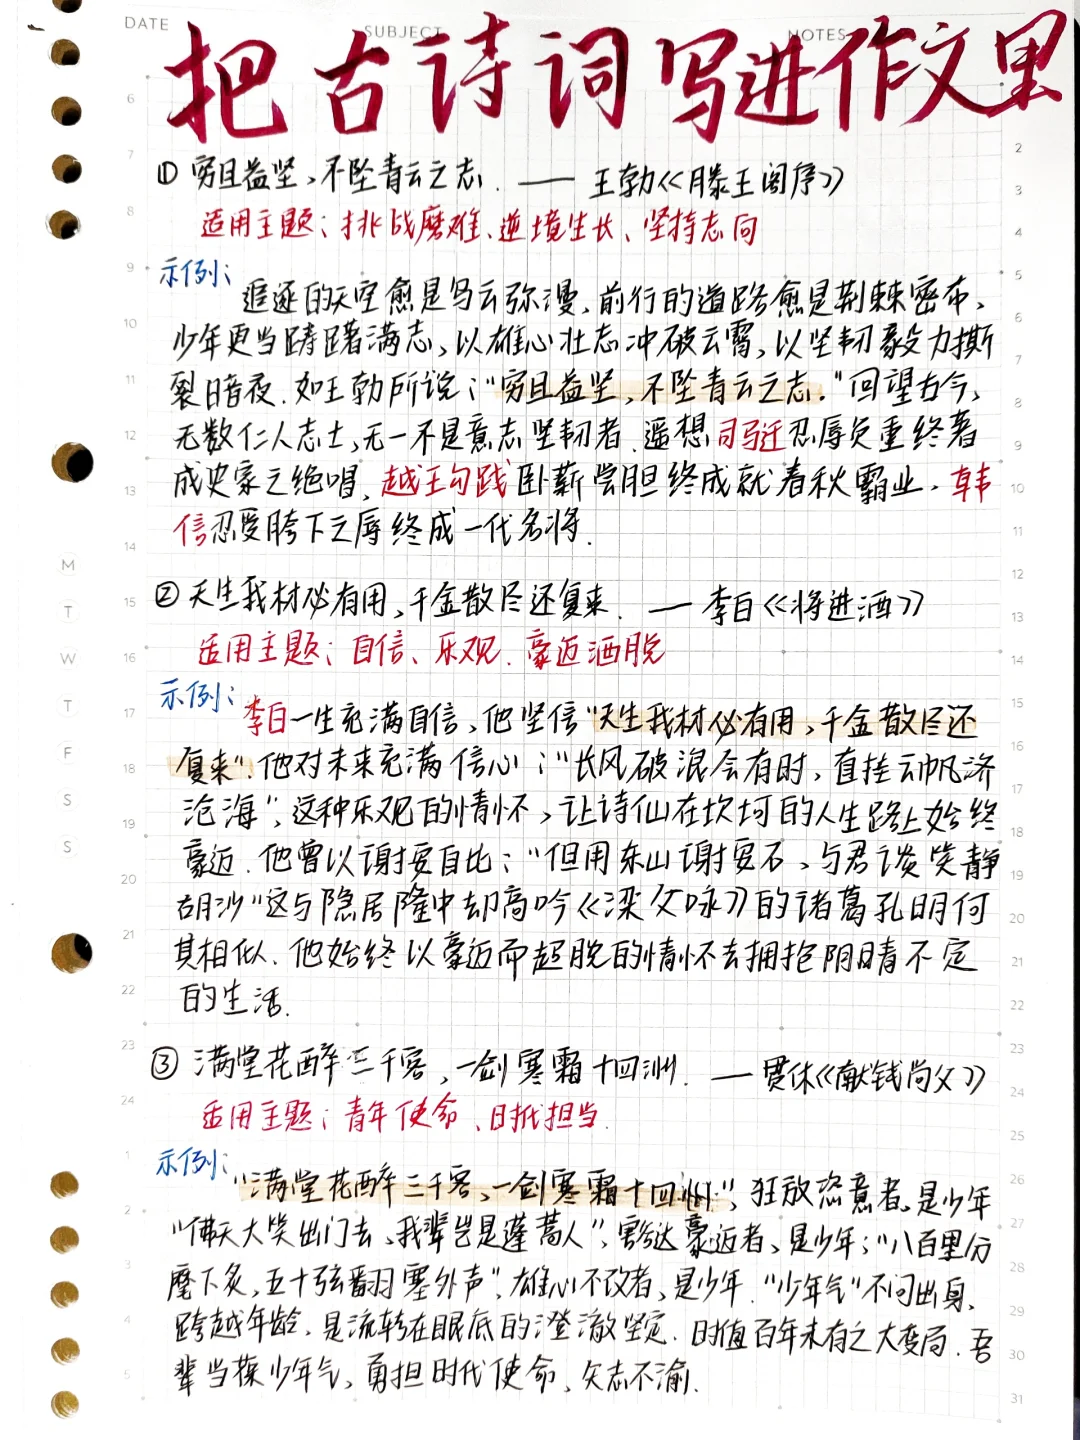 DATE
SUBJECT
NOTES
把古诗词写进作文里
① 穷且益坚,不坠青云之志. —— 王勃《滕王阁序》
适用主题:挑战磨难、逆境生长、坚持志向
示例:
追逐的天空愈是乌云弥漫,前行的道路愈是荆棘密布,
少年更当踌躇满志,以雄心壮志冲破云霄,以坚韧毅力撕
裂暗夜.如王勃所说:“穷且益坚,不坠青云之志.”回望古今,
无数仁人志士,无一不是意志坚韧者.遥想司马迁忍辱负重终著
成史家之绝唱,越王勾践卧薪尝胆终成就春秋霸业,韩
信忍受胯下之辱终成一代名将.
② 天生我材必有用,千金散尽还复来. —— 李白《将进酒》
适用主题:自信、乐观、豪迈洒脱
示例:
李白一生充满自信,他坚信“天生我材必有用,千金散尽还
复来”.他对未来充满信心:“长风破浪会有时,直挂云帆济
沧海”,这种乐观的情怀,让诗仙在坎坷的人生路上始终
豪迈.他曾以谢安自比:“但用东山谢安石,与君谈笑静
胡沙”这与隐居隆中却高吟《梁父咏》的诸葛孔明何
其相似.他始终以豪迈而超脱的情怀去拥抱阴晴不定
的生活.
③ 满堂花醉三千客,一剑寒霜十四洲. —— 贯休《献钱尚父》
适用主题:青年使命、时代担当.
示例:
“满堂花醉三千客,一剑寒霜十四洲.”,狂放恣意者,是少年
“佛天大笑出门去,我辈岂是蓬蒿人”,豁达豪迈者,是少年;“八百里分
麾下炙,五十弦翻塞外声”,雄心不改者,是少年.“少年气”不问出身,
跨越年龄,是流转在眼底的澄澈坚定.时值百年未有之大变局.吾
辈当葆少年气,勇担时代使命,矢志不渝.